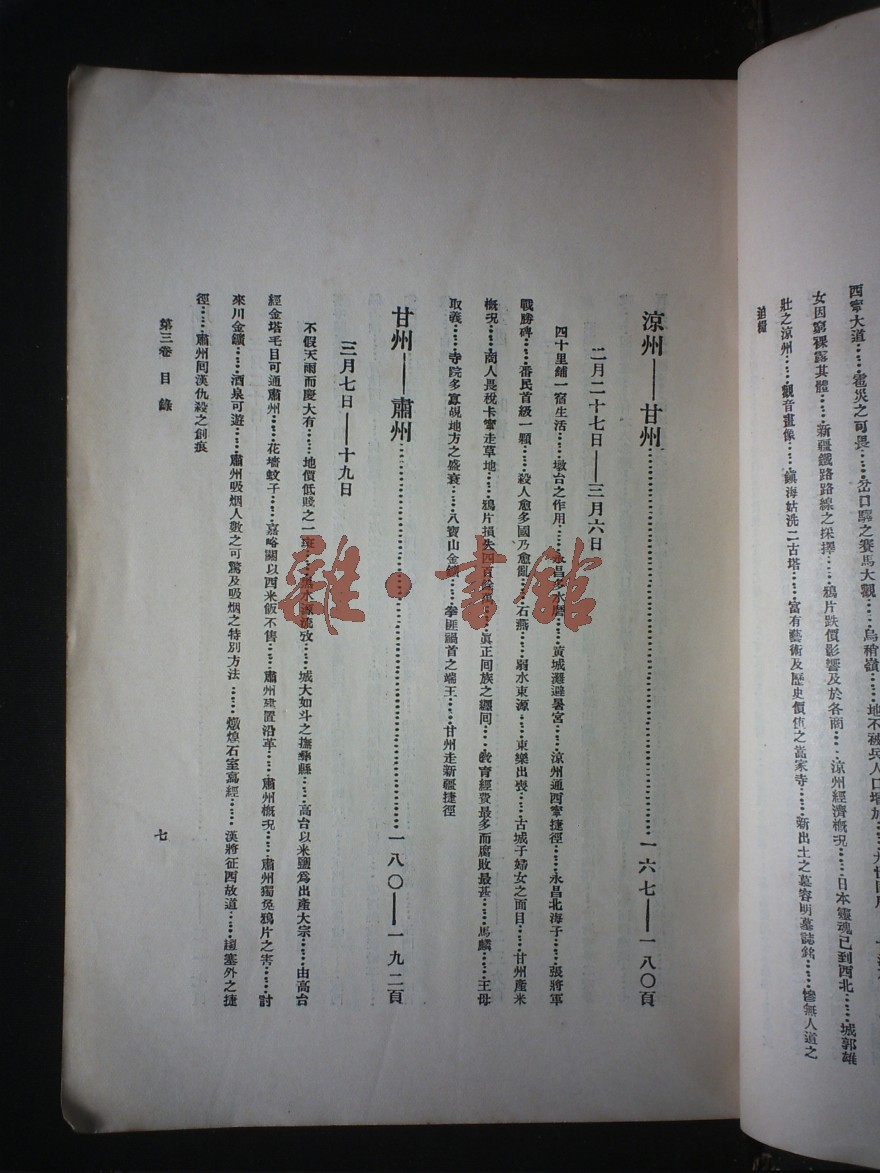 西寧大道……雹災之可畏……岔口驛之賽馬大觀……烏稍嶺……地不被兵人口增加……
女因窮裸露其體……新疆鐵路路線之採擇……鴉片跌價影響及於各商……涼州經濟概況……日本靈魂已到西北……城郭雄
壯之涼州……觀音畫像……鎮海姑洗二古塔……富有藝術及歷史價値之當家寺……新出土之慕容明墓誌銘……慘無人道之
追糧
涼州——甘州……一六七——一八〇頁
二月二十七日——三月六日
四十里鋪一宿生活……墩台之作用……永昌多水磨……黃城灘避暑宮……涼州通西寧捷徑……永昌北海子……張將軍
戰勝碑……番民首級一顆……殺人愈多國乃愈亂……石燕……弱水東源……東樂出喪……古城子婦女之面目……甘州產米
概況……商人畏稅卡寧走草地……鴉片損失四百……眞正囘族之纏囘……教育經費最多而腐敗最甚……馬麟……王母
取義……寺院多寡覘地方之盛衰……八寶山金鑛……拳匪禍首之端王……甘州走新疆捷徑
甘州——肅州……一八〇——一九二頁
三月七日——十九日
不假天雨而慶大有……地價低賤之一斑……黑水源流攷……城大如斗之撫彝縣……高台以米鹽爲出產大宗……由高台
經金塔毛目可通肅州……花墻蚊子……嘉峪關以西米飯不售……肅州建置沿革……肅州概況……肅州獨免鴉片之害……討
來川金鑛……酒泉可遊……肅州吸烟人數之可驚及吸烟之特別方法……燉煌石室寫經……漢將征西故道……趨塞外之捷
徑……肅州囘漢仇殺之創痕
第三卷 目錄
七
雜·書館